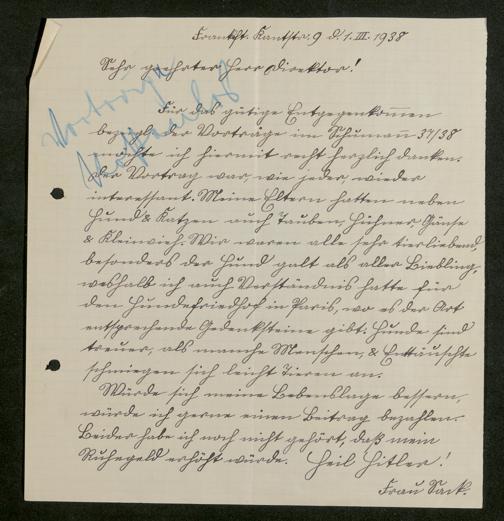 Frankft. Kantstr. 9 d. 1. III. 1938
Sehr geehrter Herr Direktor!
Für das gütige Entgegenkommen
bezügl. der Vorträge im Schumann 37/38
möchte ich hiermit recht herzlich danken.
Der Vortrag war, wie jeder, wieder
interessant. Meine Eltern hatten neben
Hund & Katzen auch Tauben, Hühner, Gänse
& Kleinvieh. Wir waren alle sehr tierliebend,
besonders der Hund galt als aller Liebling,
weshalb ich auch Verständnis hatte für
den Hundefriedhof in Paris, wo es der Art
entsprechende Gedenksteine gibt. Hunde sind
treuer, als manche Menschen, & Enttäuschte
schmiegen sich leicht Tieren an.
Würde sich meine Lebenslage bessern,
würde ich gerne einen Beitrag bezahlen.
Leider habe ich noch nicht gehört, daß mein
Ruhegeld erhöht würde. Heil Hitler!
Frau Sack.
Vorträge